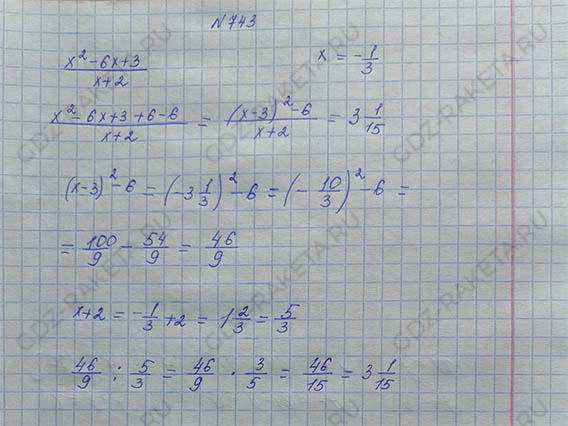 N 743
(x² - 6x + 3)/(x+2)   x = -1/3
(x² - 6x + 3 + 6 - 6)/(x+2) = ((x-3)² - 6)/(x+2) = 3 1/15
(x-3)² - 6 = (-3 1/3)² - 6 = (- 10/3)² - 6 =
= 100/9 - 54/9 = 46/9
x+2 = -1/3 + 2 = 1 2/3 = 5/3
46/9 : 5/3 = 46/9 · 3/5 = 46/15 = 3 1/15
GDZ-RAKETA.RU
GDZ-RAKETA.RU
GDZ-RAKETA.RU
GDZ-RAKETA.RU
GDZ-RAKETA.RU
GDZ-RAKETA.RU